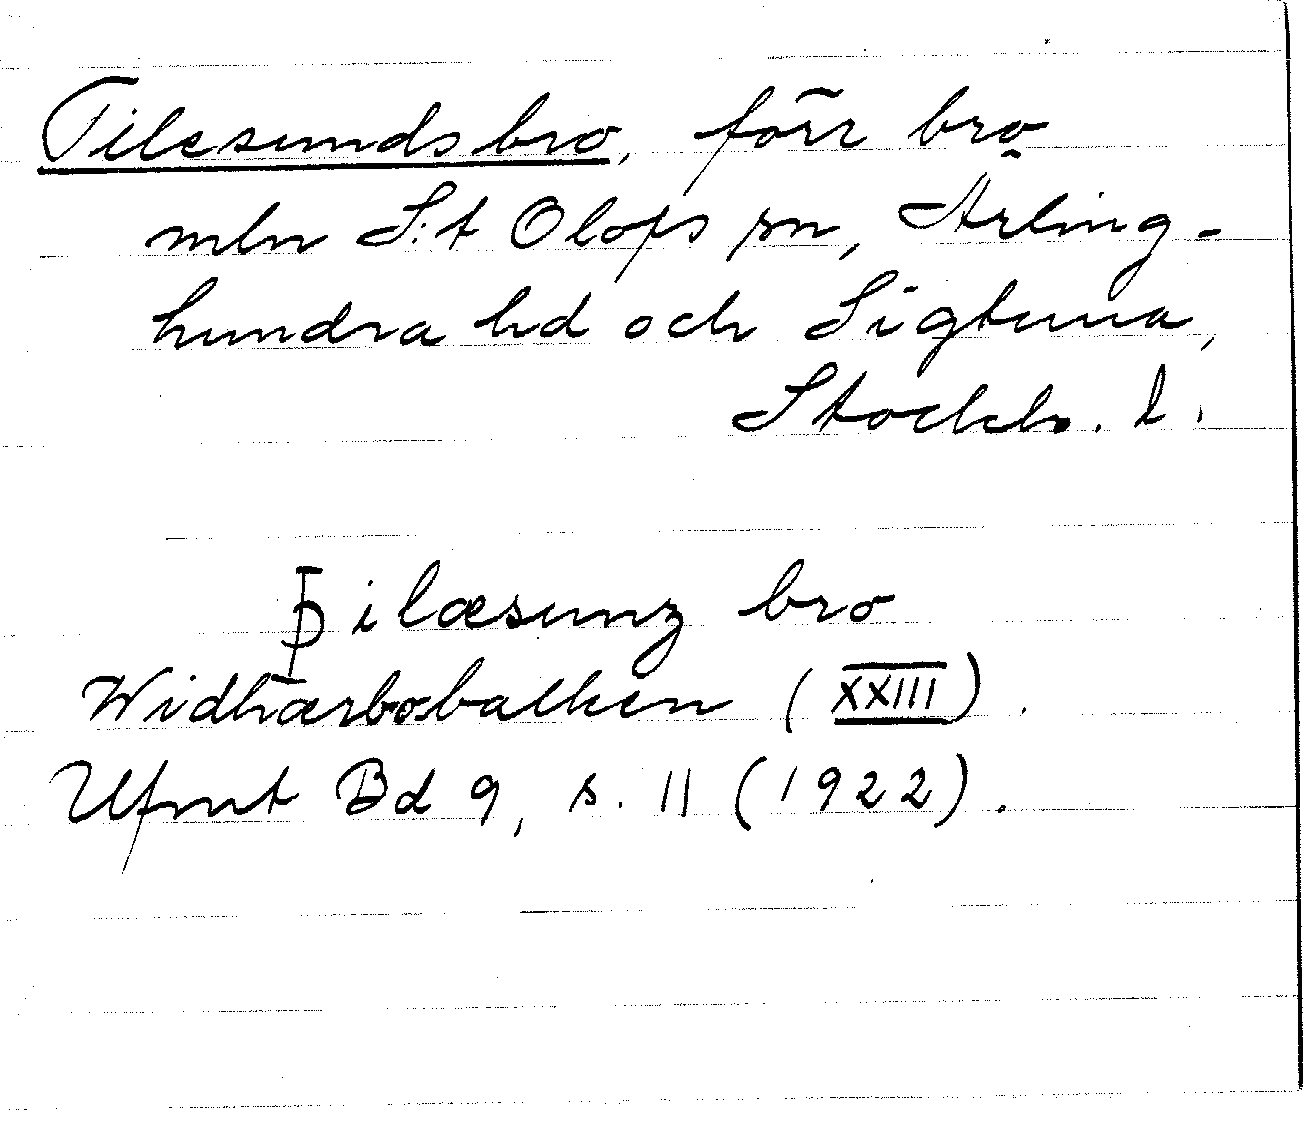 Tilesundsbro, förr bro
mln S:t Olofs sn, Ärling-
hundra hd och Sigtuna,
Stockh. l.
Þilæsunz bro
Widhærbobalken (XXIII).
Ufmt Bd 9, s. 11 (1922).